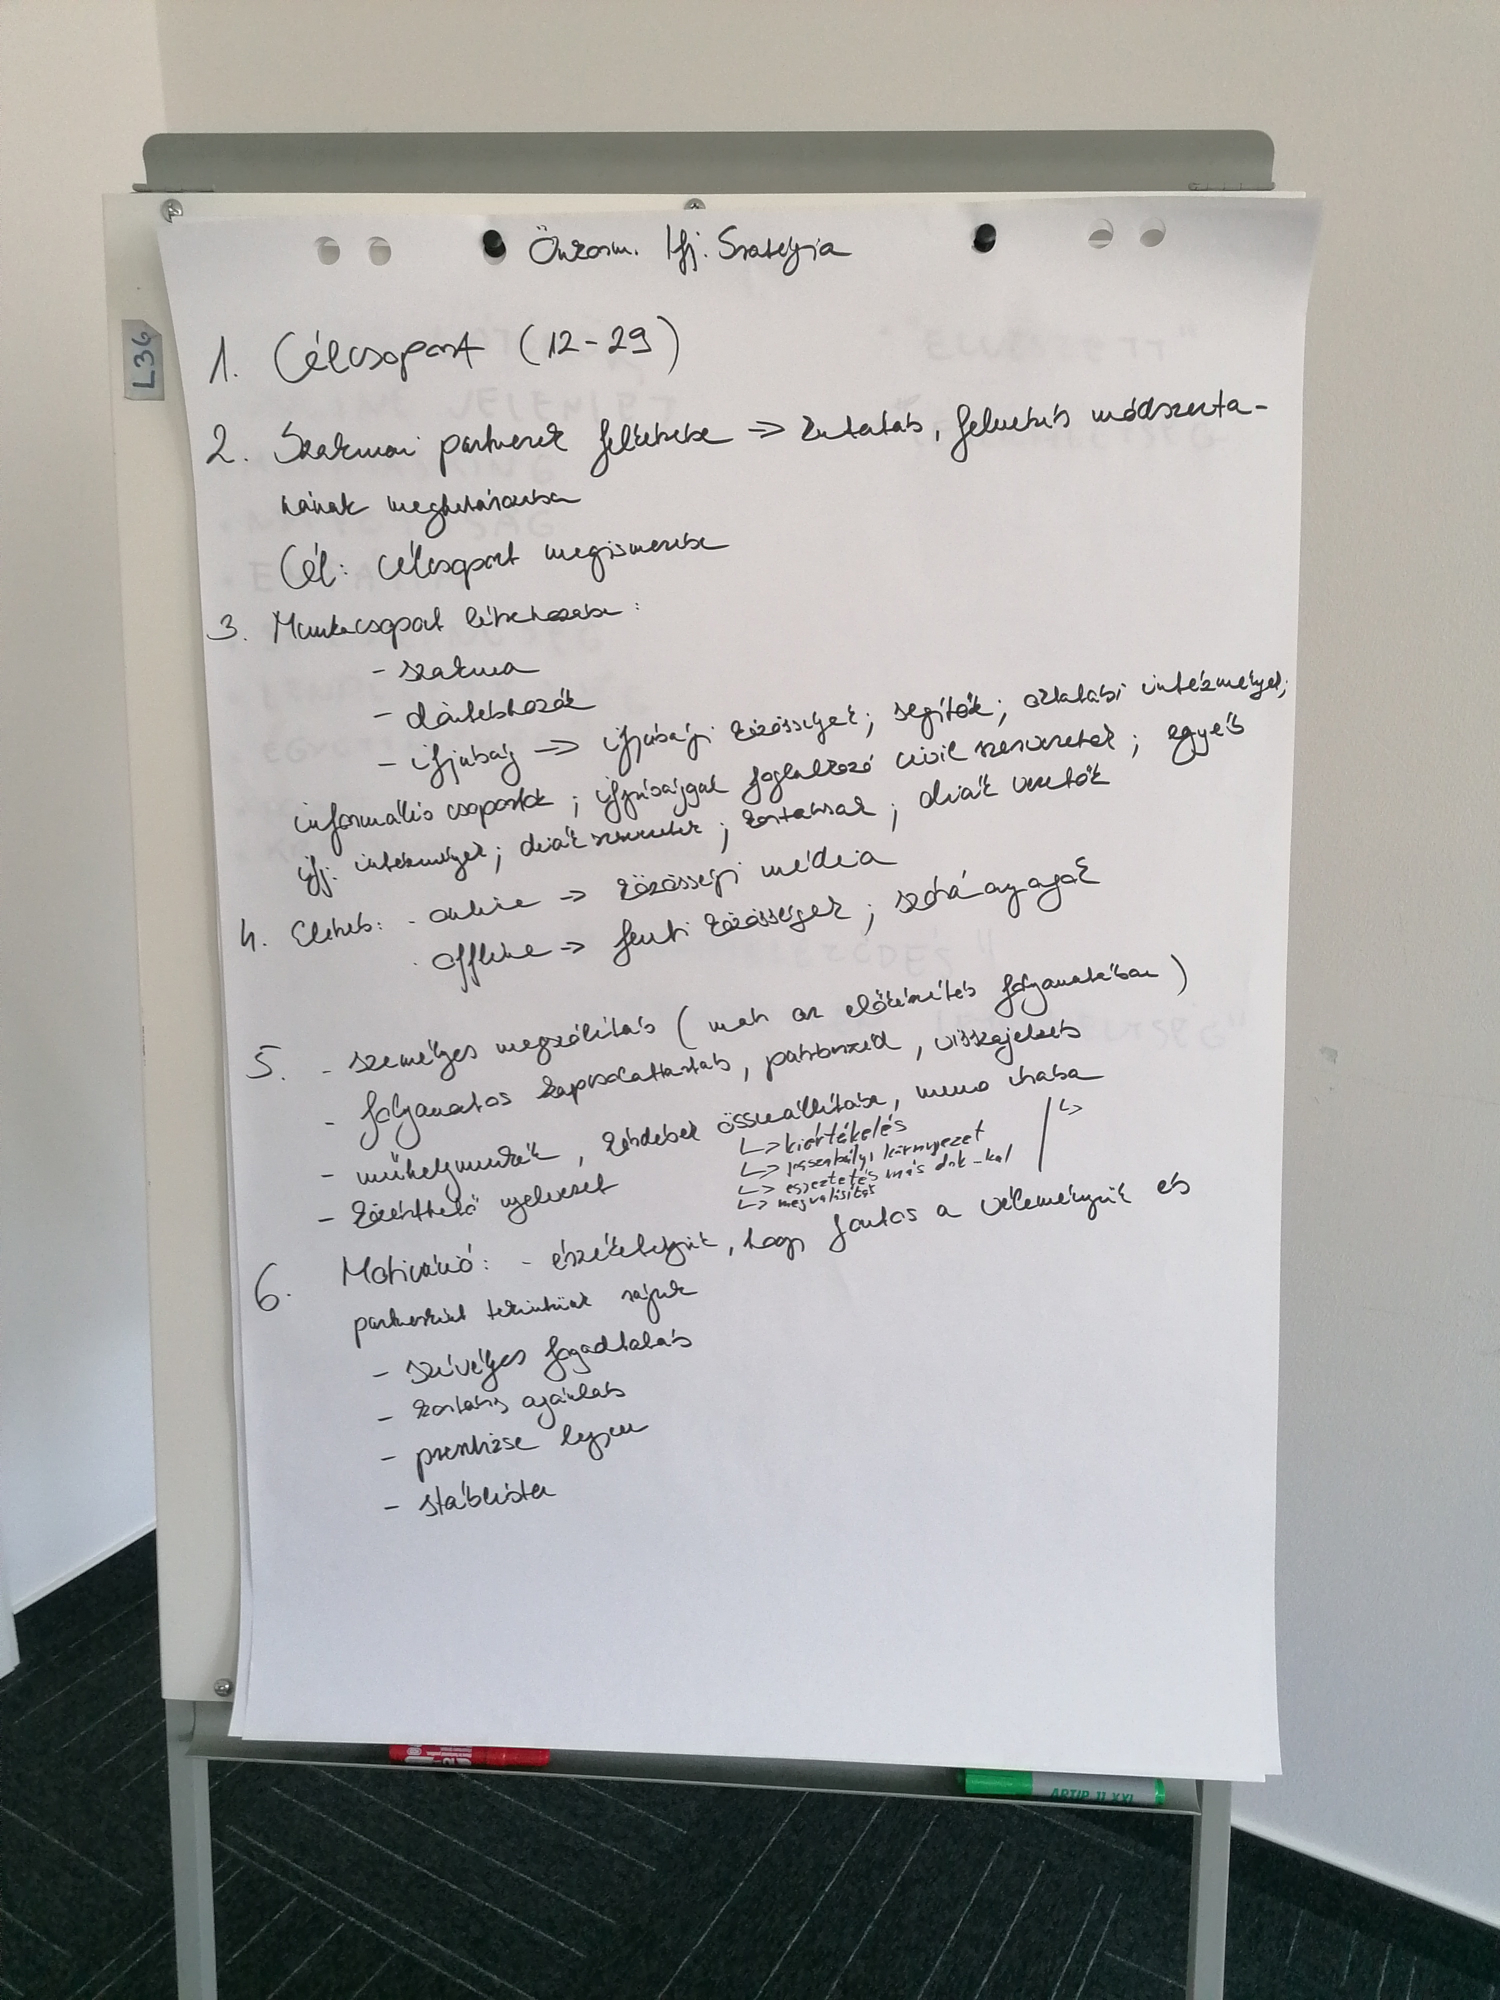 Önkorm. Ifj. Stratégia
L36
1. Célcsoport (12-29)
2. Szakmai partnerek felkérése => kutatás, felmérés módszerta-
nának meghatározása
Cél: célcsoport megismerése
3. Munkacsoport létrehozása:
- szakma
- döntéshozók
- ifjúság => ifjúsági közösségek; segítők; oktatási intézmények;
informális csoportok; ifjúsággal foglalkozó civil szervezetek; egyéb
ifj. intézmények; diákszervezetek; kortársak; diák vezetők
4. Elérés: - online => közösségi média
- offline => fenti közösségek; szóróanyagok
5. - személyes megszólítás (már az előkészítés folyamatában)
- folyamatos kapcsolattartás, párbeszéd, visszajelzés
- műhelymunkák, kérdések összeállítása, memo írása
↳ kiértékelés
↳ jogszabályi környezet
↳ egyeztetés más dok.-kal
↳ megvalósítás
- közérthető nyelvezet
6. Motiváció: - érzékeltetjük, hogy fontos a véleményük és
partnerként tekintünk rájuk
- szívélyes fogadtatás
- kortárs ajánlás
- presztízse legyen
- stáblista
ARTIP 11 XXL